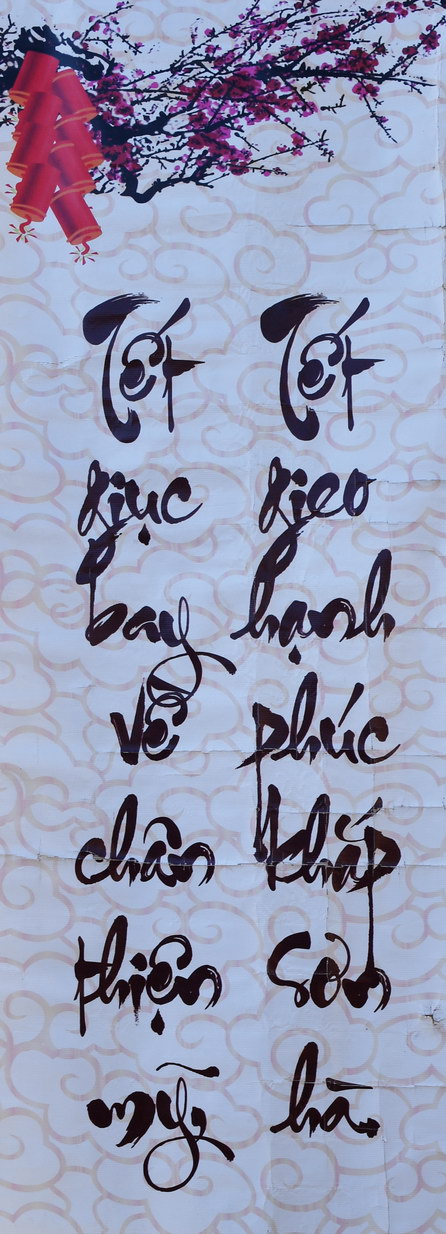 Tết giục bay về chân thiện mỹ,
Tết gieo hạnh phúc khắp sơn hà.